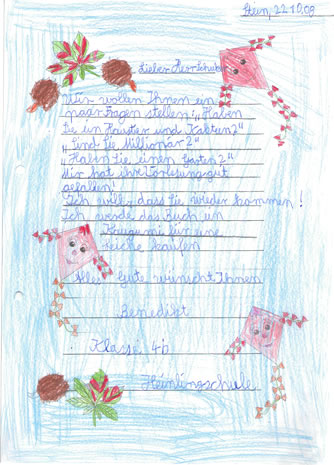 Stein, 22.10.09
Lieber Herr Schuber
Wir wollen Ihnen ein
paar Fragen stellen: „Haben
Sie ein Haustier und Kakteen?“
„Sind Sie Millionär?“
„Haben Sie einen Garten?“
Mir hat ihre Vorlesung gut
gefallen!
Ich will, dass Sie wieder kommen!
Ich werde das Buch ein
für eine
Leiche kaufen
Alles Gute wünscht Ihnen
Benedikt
Klasse 4b